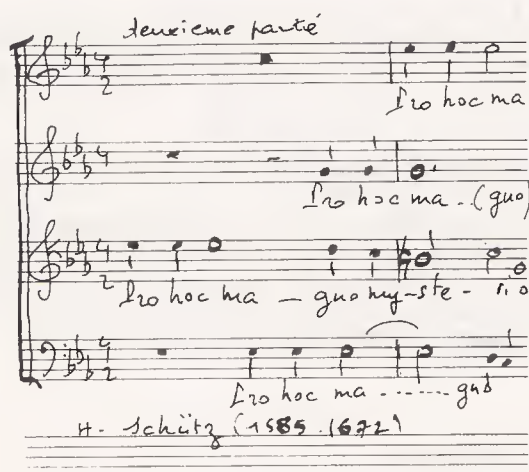 deuxieme partié
4 2
Pro hoc ma
4
Pro hoc ma - (guo)
4 2
Pro hoc ma - guo my-ste - rio
4 2
Pro hoc ma ....... guo
H. Schütz (1585.1672)